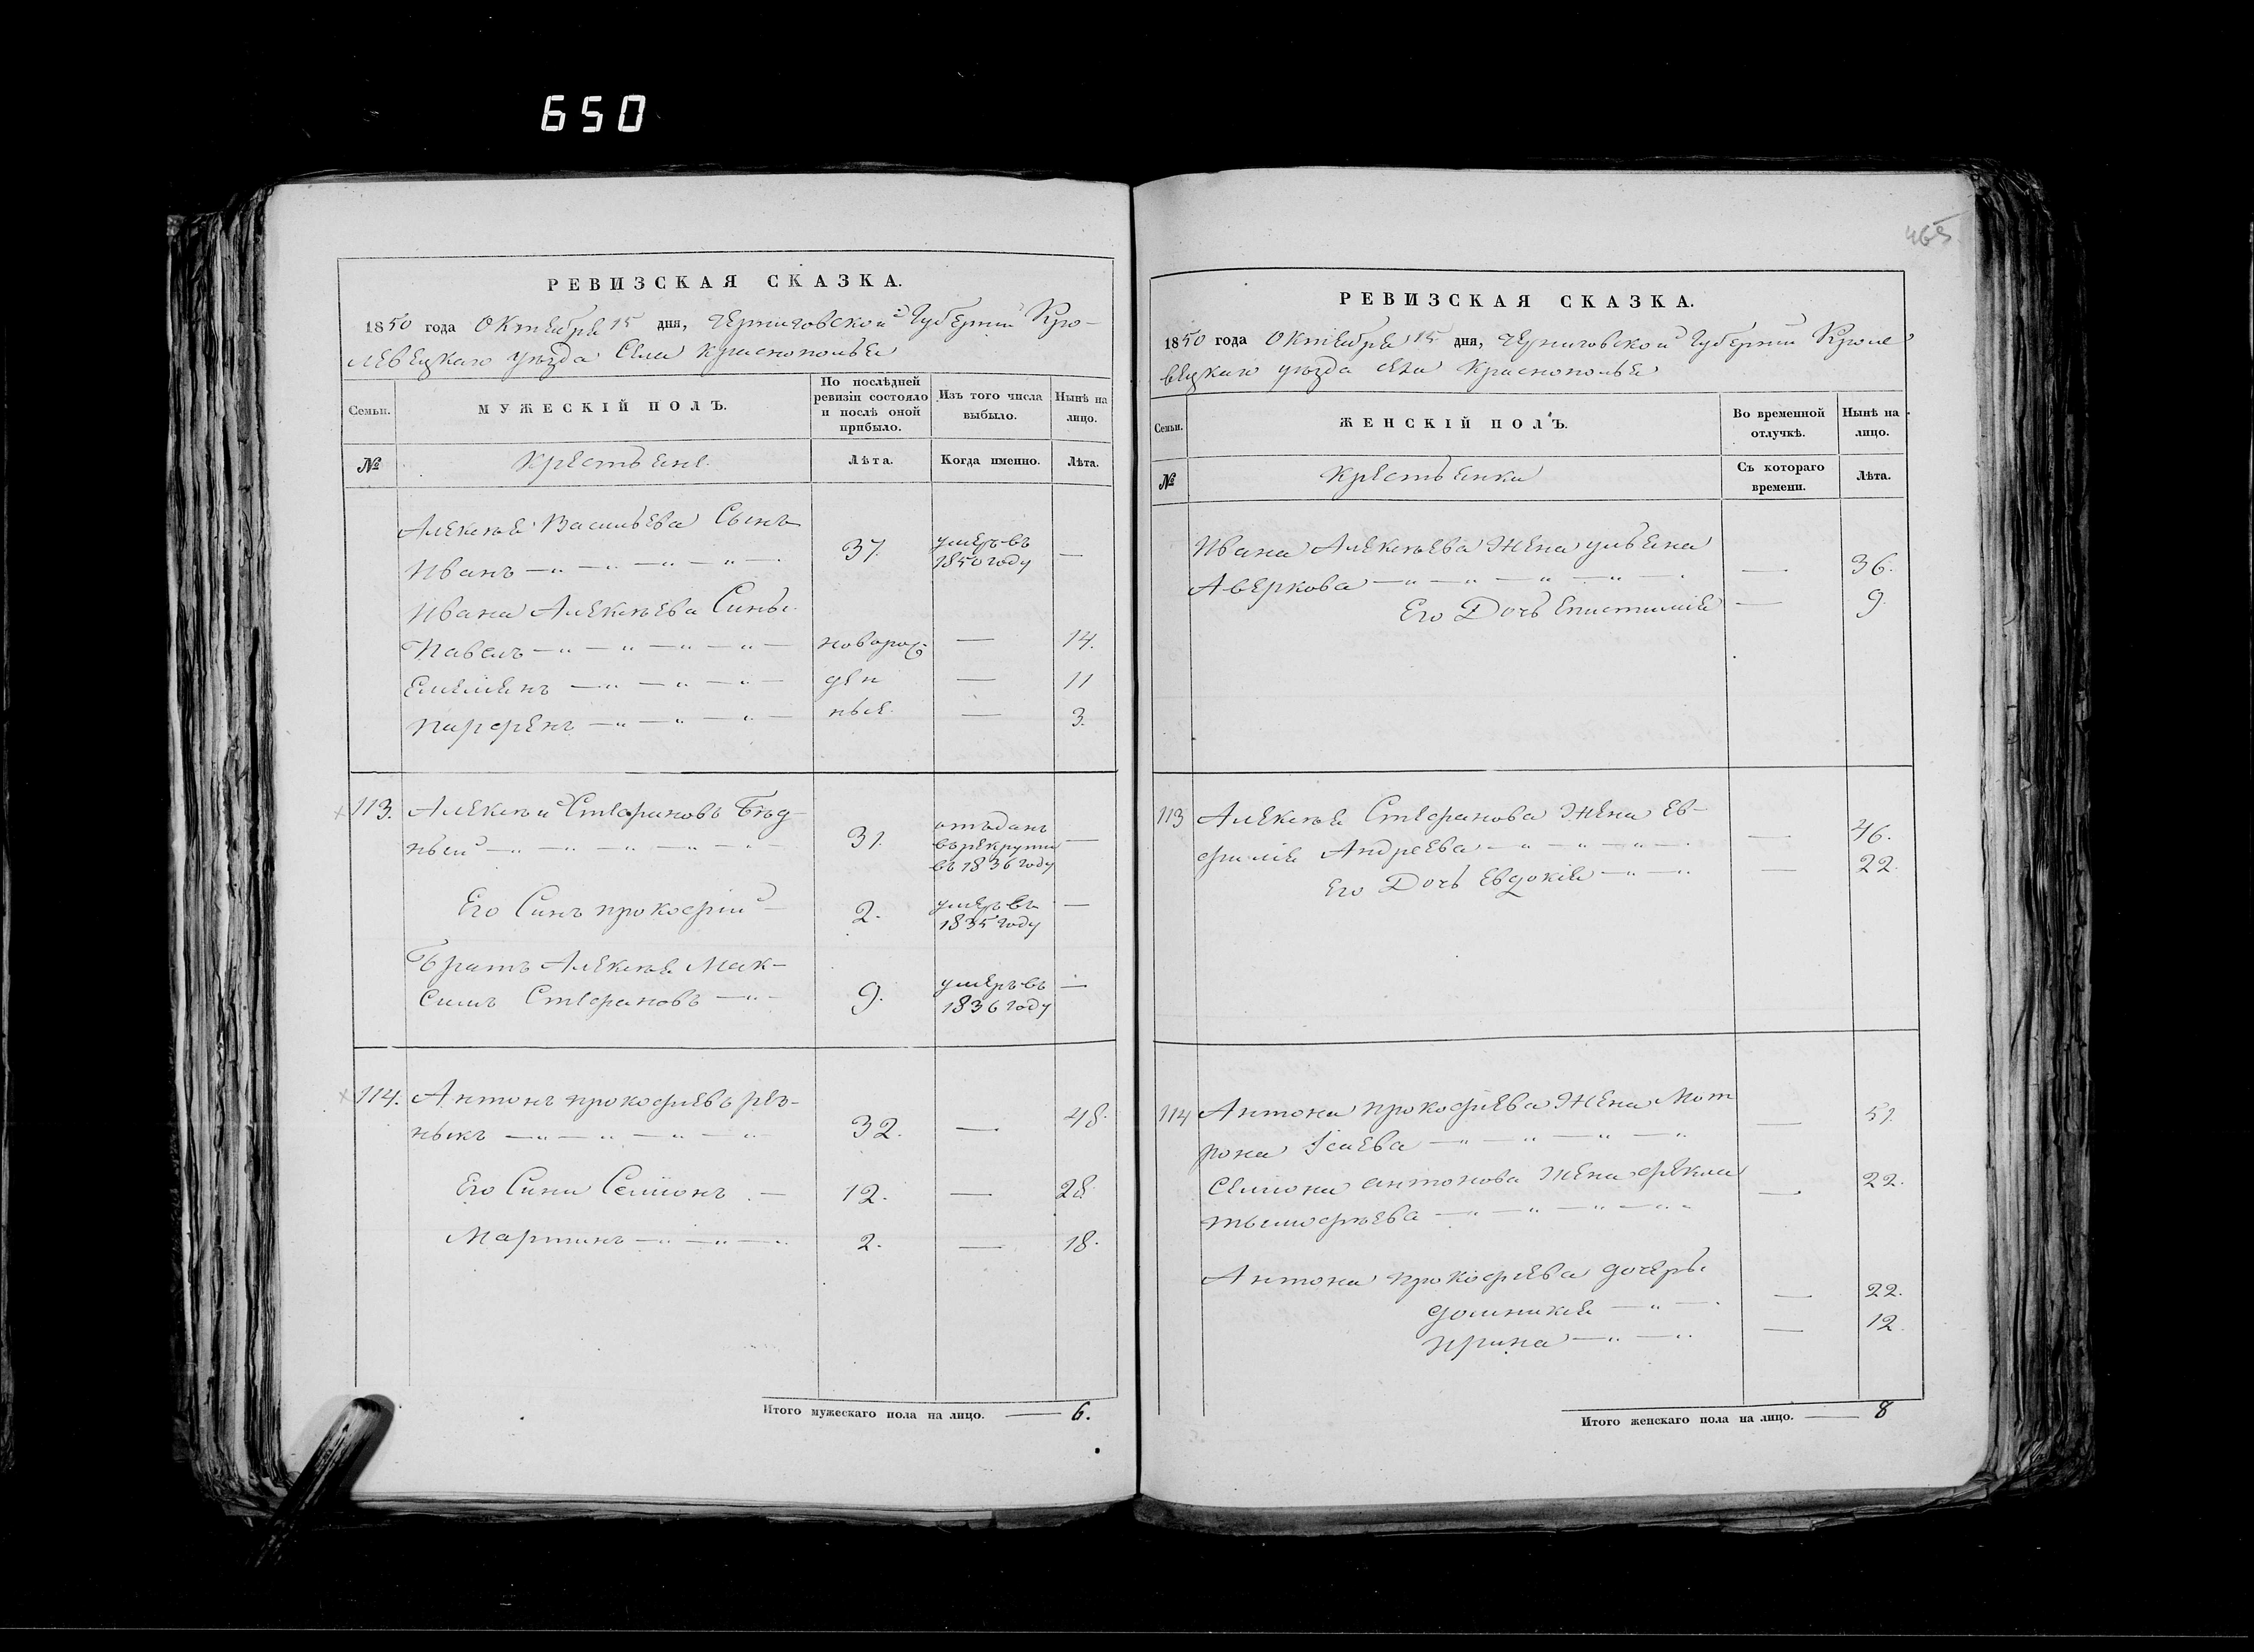 650
465
РЕВИЗСКАЯ СКАЗКА.
1850 года Октебря 15 дня, Черниговской Губернии Кро-
левецкаго уѣзда Села Краснополья
Семьи.
МУЖЕСКІЙ ПОЛЪ.
По послѣдней ревизіи состояло и послѣ оной прибыло.
Изъ того числа выбыло.
Нынѣ на лицо.
№
Крестьяне.
Лѣта.
Когда именно.
Лѣта.
Алексѣя Васильева Сынъ
Иванъ 37 умеръ въ 1850 году —
Ивана Алексѣева Сыны
Павелъ новорож — 14.
Емелянъ ден — 11
Парфенъ ные — 3.
113. Алексѣй Стефановъ Бѣд-
ный 31. отъданъ въ рекруты въ 1836 году —
Его Синъ прокофий — 2. умеръ въ 1835 году —
Братъ Алексѣя Мак-
симъ Стефановъ 9. умеръ въ 1836 году —
114. Антонъ прокофиевъ рез-
ныкъ 32. — 48.
Его Сини Семионъ — 12. — 28
Мартинъ 2. — 18.
Итого мужескаго пола на лицо. — 6.
РЕВИЗСКАЯ СКАЗКА.
1850 года Октебря 15 дня, Черниговской Губернии Кроле
вецкаго уѣзда села Краснополья
Семьи.
ЖЕНСКІЙ ПОЛЪ.
Во временной отлучкѣ.
Нынѣ на лицо.
№
Крестьянки
Съ котораго времени.
Лѣта.
Ивана Алексѣева Жена ульяна
Аверкова — 36.
Его Дочь Епистимия — 9
113 Алексѣя Стефанова Жена Ев-
фимия Андреева — 46.
Его Дочь Евдокия — 22.
114 Антона прокофиева Жена Мот
рона Ісаева — 51.
Семиона антонова Жена фекла — 22.
тымофѣева
Антона прокофиева дочеры
домникия — 22.
ирина — 12.
Итого женскаго пола на лицо. — 8